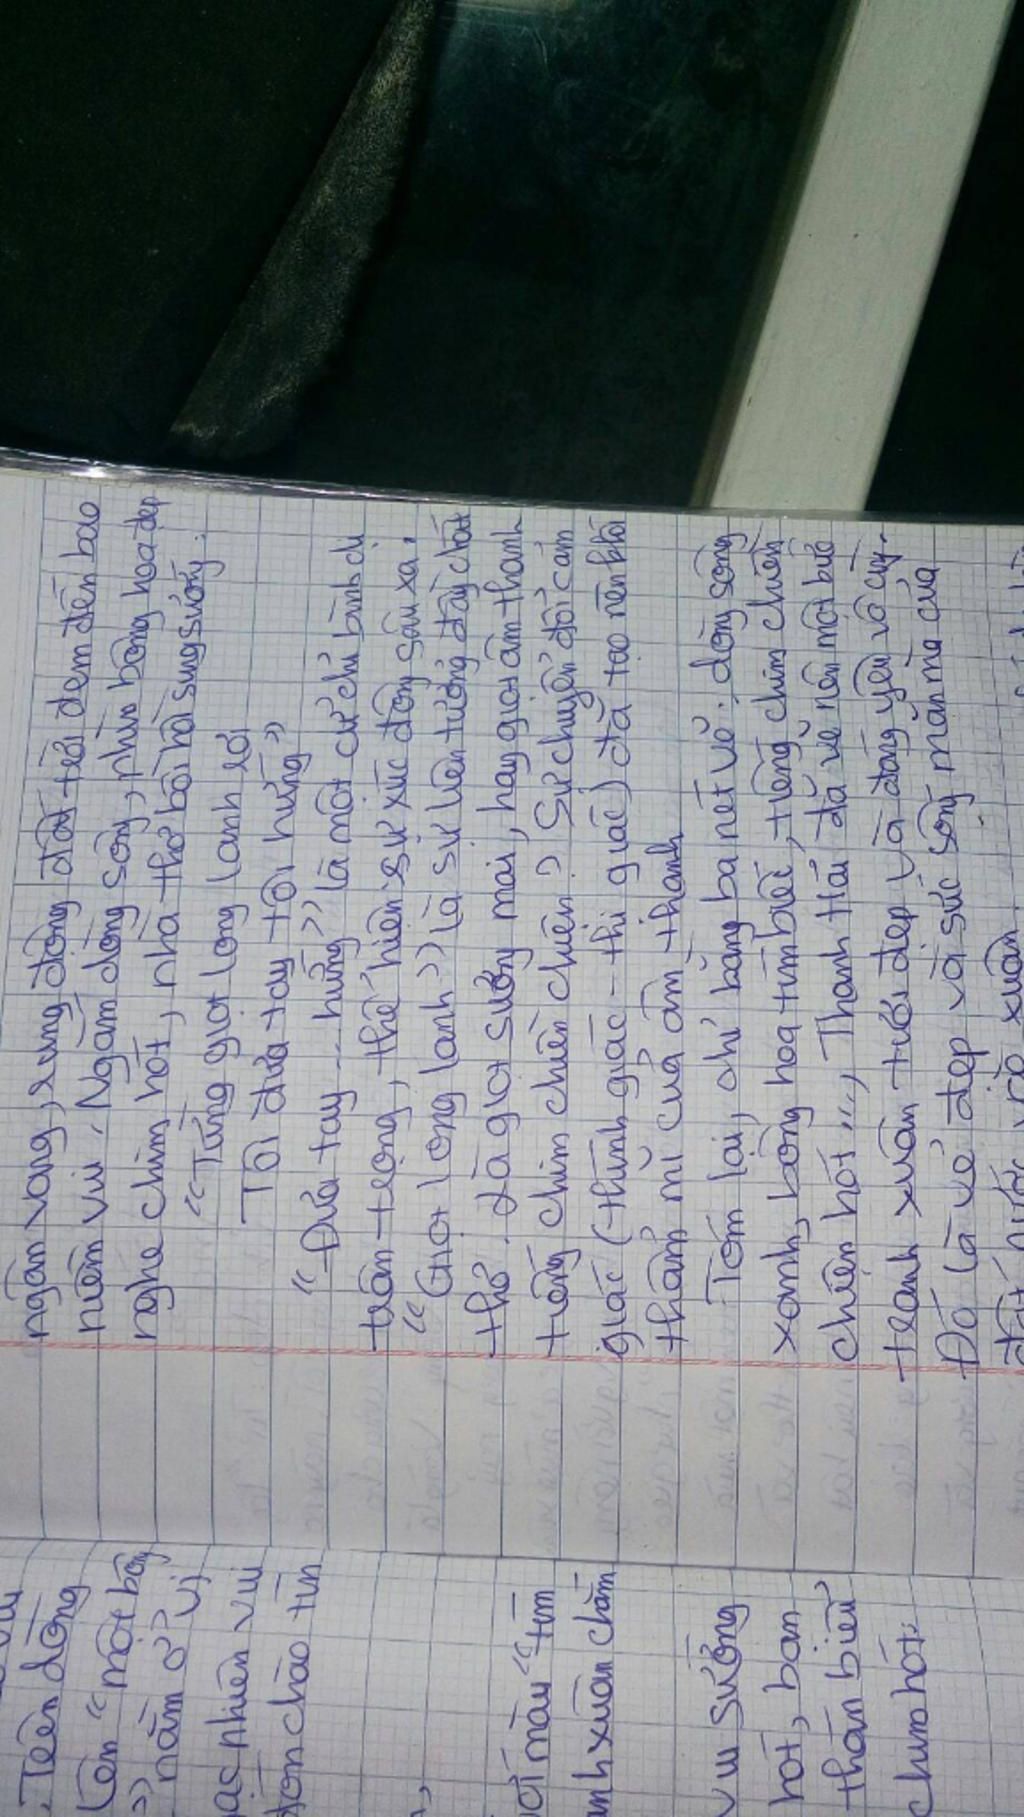 Trên dòng
lên "một bông
nằm ở vị
nhiên vui
đón chào tín
màu "tím
xuân chăm
vui sướng
hót, ban
thán biểu
chim hót:
ngân vang, rung động đất trời đem đến bao
niềm vui. Ngắm dòng sông, nhìn bông hoa đẹp
nghe chim hót, nhà thơ bồi hồi sung sướng.
"Từng giọt long lanh rơi
Tôi đưa tay tôi hứng"
"Đưa tay... hứng" là một cử chỉ bình dị
trân trọng, thể hiện sự xúc động sâu xa.
"Giọt long lanh" là sự liên tưởng đầy chất
thơ. Là giọt sương mai, hay giọt âm thanh
tiếng chim chiền chiện? Sự chuyển đổi cảm
giác (thính giác - thị giác) đã tạo nên khối
thẩm mĩ của âm thanh
Tóm lại, chỉ bằng ba nét vẽ: dòng sông
xanh, bông hoa tím biếc, tiếng chim chiền
chiện hót..., Thanh Hải đã vẽ nên một bức
tranh xuân tươi đẹp và đáng yêu vô cùng.
Đó là vẻ đẹp và sức sống mặn mà của
đất nước vào xuân.